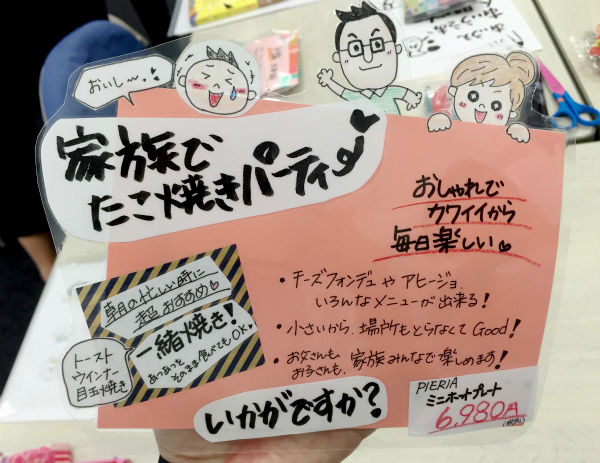 おいし〜♥
家族で
たこ焼きパーティ
おしゃれで
カワイイから
毎日楽しい
・チーズフォンデュやアヒージョ、
いろんなメニューが出来る!
・小さいから、場所もとらなくてGood!
・お父さんも、お子さんも、家族みんなで楽しめます!
朝の忙しい時に
超おすすめ♡
一緒焼き!
あつあつを
そのまま食べてもOK
トースト
ウインナー
目玉焼き
いかがですか?
PIERIA
ミニホットプレート
6,980円